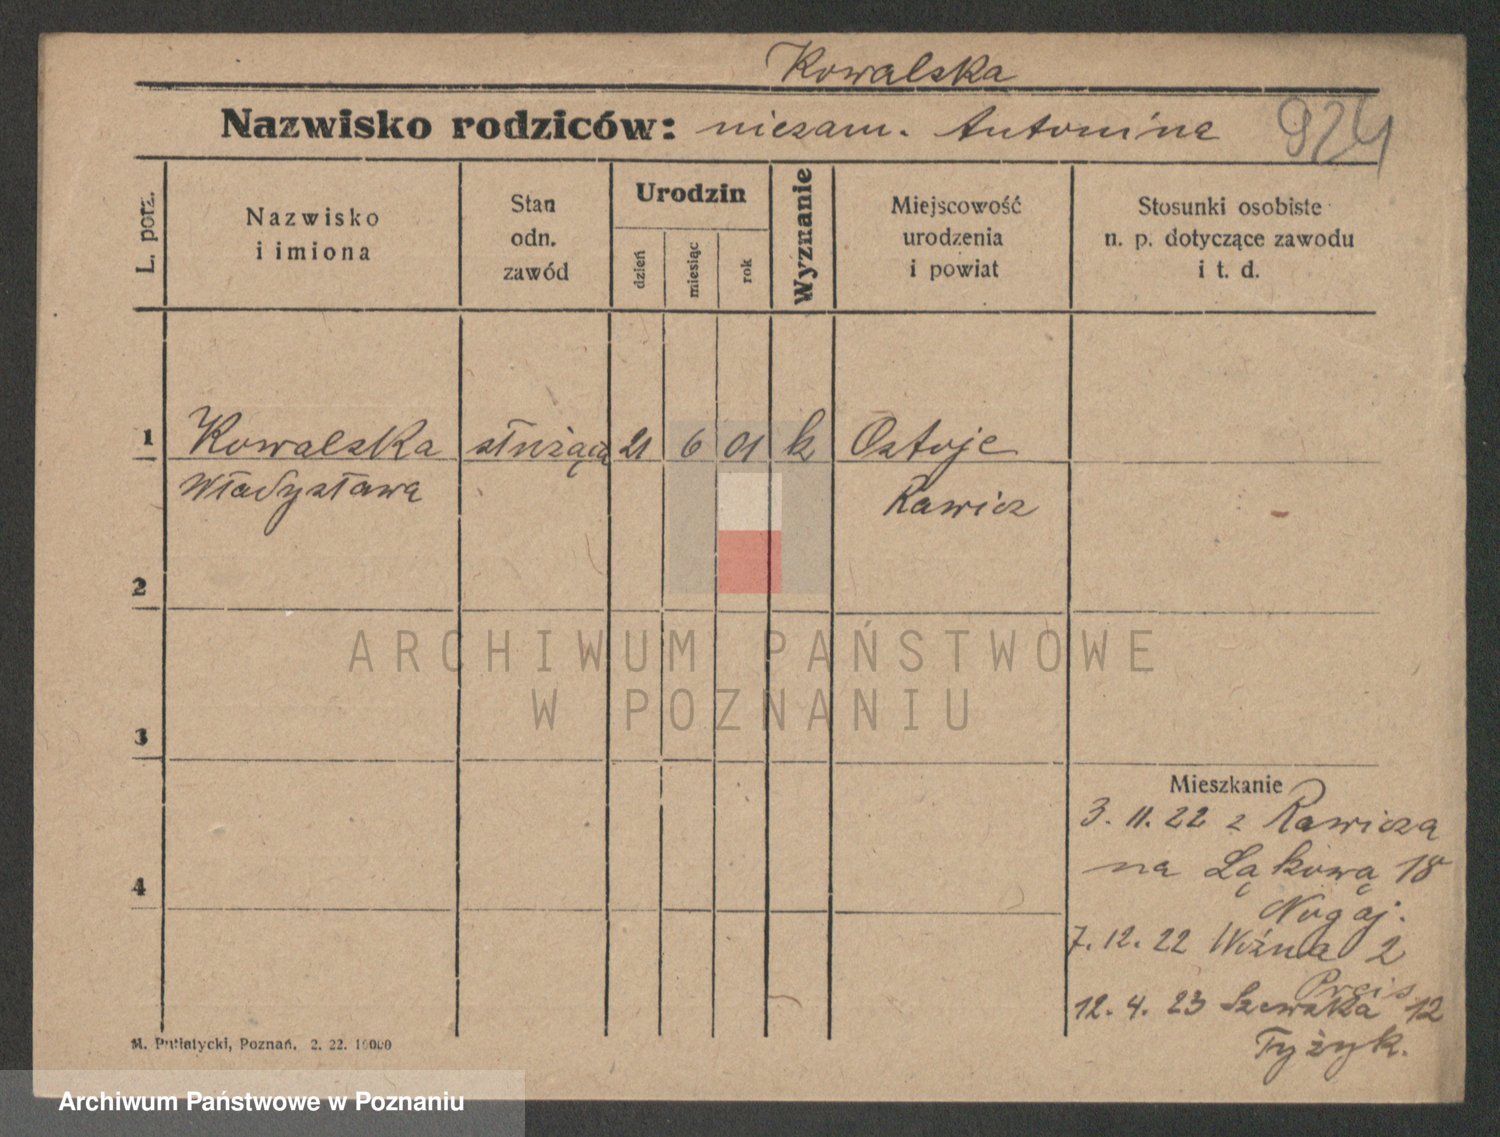 Kowalska
Nazwisko rodziców: niezam. Antonina 924
L. porz.
Nazwisko i imiona
Stan odn. zawód
Urodzin
dzień
miesiąc
rok
Wyznanie
Miejscowość urodzenia i powiat
Stosunki osobiste n. p. dotyczące zawodu i t. d.
1 Kowalska służąca 21 6 01 k Ostoje
Władysława Rawicz
2
ARCHIWUM PAŃSTWOWE
W POZNANIU
3
Mieszkanie
3. 11. 22 z Rawicza
4 na Łąkową 18
Nogaj.
7. 12. 22 Woźna 2
Preis
12. 4. 23 Szewska 12
Tyżyk.
M. Putiatycki, Poznań. 2. 22. 10000
Archiwum Państwowe w Poznaniu